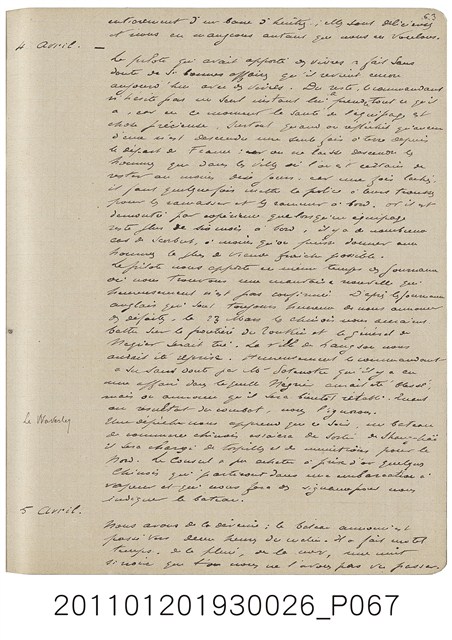 63
entièrement d'un banc d'huîtres ; elles sont délicieuses
et nous en mangeons autant que nous en voulons.
4 Avril. —
Le pilote qui avait apporté des vivres a fait sans
doute de si bonnes affaires qu'il revient encore
aujourd'hui avec des vivres. Du reste le commandant
n'hésite pas un seul instant à lui prendre tout ce qu'il
a, car en ce moment la santé de l'équipage est
chose précieuse, surtout quand on réfléchit qu'aucun
d'eux n'est descendu une seule fois à terre depuis
le départ de France : car on ne laisse descendre les
hommes que dans les villes où l'on est certain de
rester au moins deux jours, car une fois lâchés
il faut quelquefois mettre la police à leurs trousses
pour les ramasser et les ramener à bord. Or il est
démontré par expérience que lorsqu'un équipage
reste plus de six mois à bord, il y a de nombreux
cas de scorbut, à moins qu'on puisse donner aux
hommes le plus de viande fraîche possible.
Le pilote nous apporte en même temps des journaux
où nous trouvons une mauvaise nouvelle qui
heureusement n'est pas confirmée. D'après les journaux
anglais qui sont toujours heureux de nous annoncer
des défaites, le 23 Mars les chinois nous auraient
battu sur la frontière du Tonkin et le général de
Négrier serait tué. La ville de Langson nous
aurait été reprise. Heureusement le commandant
a su sans doute par Mr. qu'il y a eu
une affaire dans laquelle Négrier aurait été blessé,
mais on annonce qu'il sera bientôt rétabli. Quant
au résultat du combat, nous l'ignorons.
Le Waverley
Une dépêche nous apprend que ce soir, un bateau
de commerce chinois essaiera de sortir de Shang-haï
il sera chargé de torpilles et de munitions pour le
Nord. Le Consul a pu acheter à prix d'or quelques
Chinois qui partiront dans une embarcation à
vapeur et qui nous fera des signaux pour nous
indiquer le bateau.
5 Avril.
Nous avons de la déveine : le bateau annoncé est
passé vers deux heures du matin. Il a fait mauvais
temps, de la pluie, de la mer, une nuit
si noire que nous ne l'avons pas vu passer.
201101201930026_P067